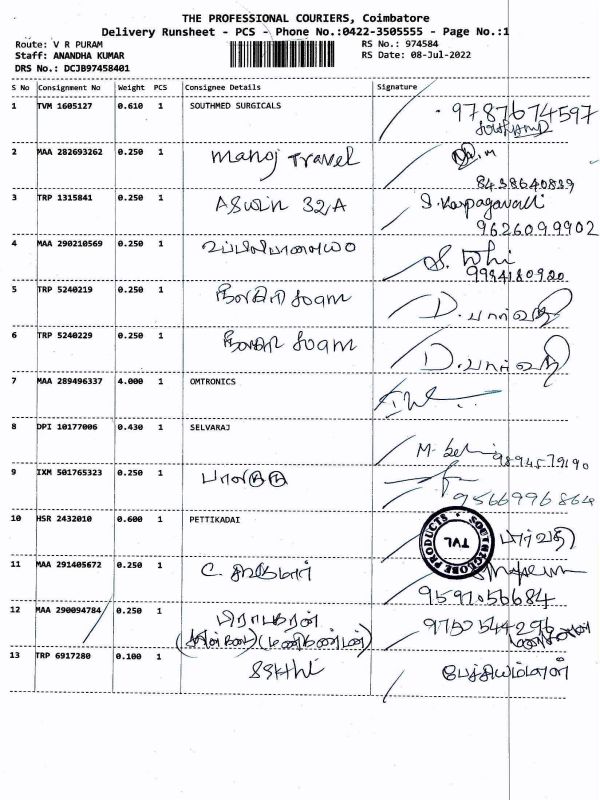 THE PROFESSIONAL COURIERS, Coimbatore
Delivery Runsheet - PCS - Phone No.:0422-3505555 - Page No.:1
Route: V R PURAM
RS No.: 974584
Staff: ANANDHA KUMAR
RS Date: 08-Jul-2022
DRS No.: DCJB97458401
S No Consignment No Weight PCS Consignee Details Signature
1 TVM 1605127 0.610 1 SOUTHMED SURGICALS 9787674597
2 MAA 282693262 0.250 1 Manoj Travel
8438640839
3 TRP 1315841 0.250 1 ASWIN 32/A S. Karpagavalli
9626099902
4 MAA 290210569 0.250 1
9994180920
5 TRP 5240219 0.250 1 foam D. பார்வதி
6 TRP 5240229 0.250 1 foam D. பார்வதி
7 MAA 289496337 4.000 1 OMTRONICS
8 DPI 10177006 0.430 1 SELVARAJ
9894579190
9 IXM 501765323 0.250 1
9566996864
10 HSR 2432010 0.600 1 PETTIKADAI பார்வதி
SOUTHGLOBE PRODUCTS TVL
11 MAA 291405672 0.250 1 C.
9597056684
12 MAA 290094784 0.250 1 பிரபாகரன் 9750544296
13 TRP 6917280 0.100 1 Sakthi பேச்சியம்மாள்